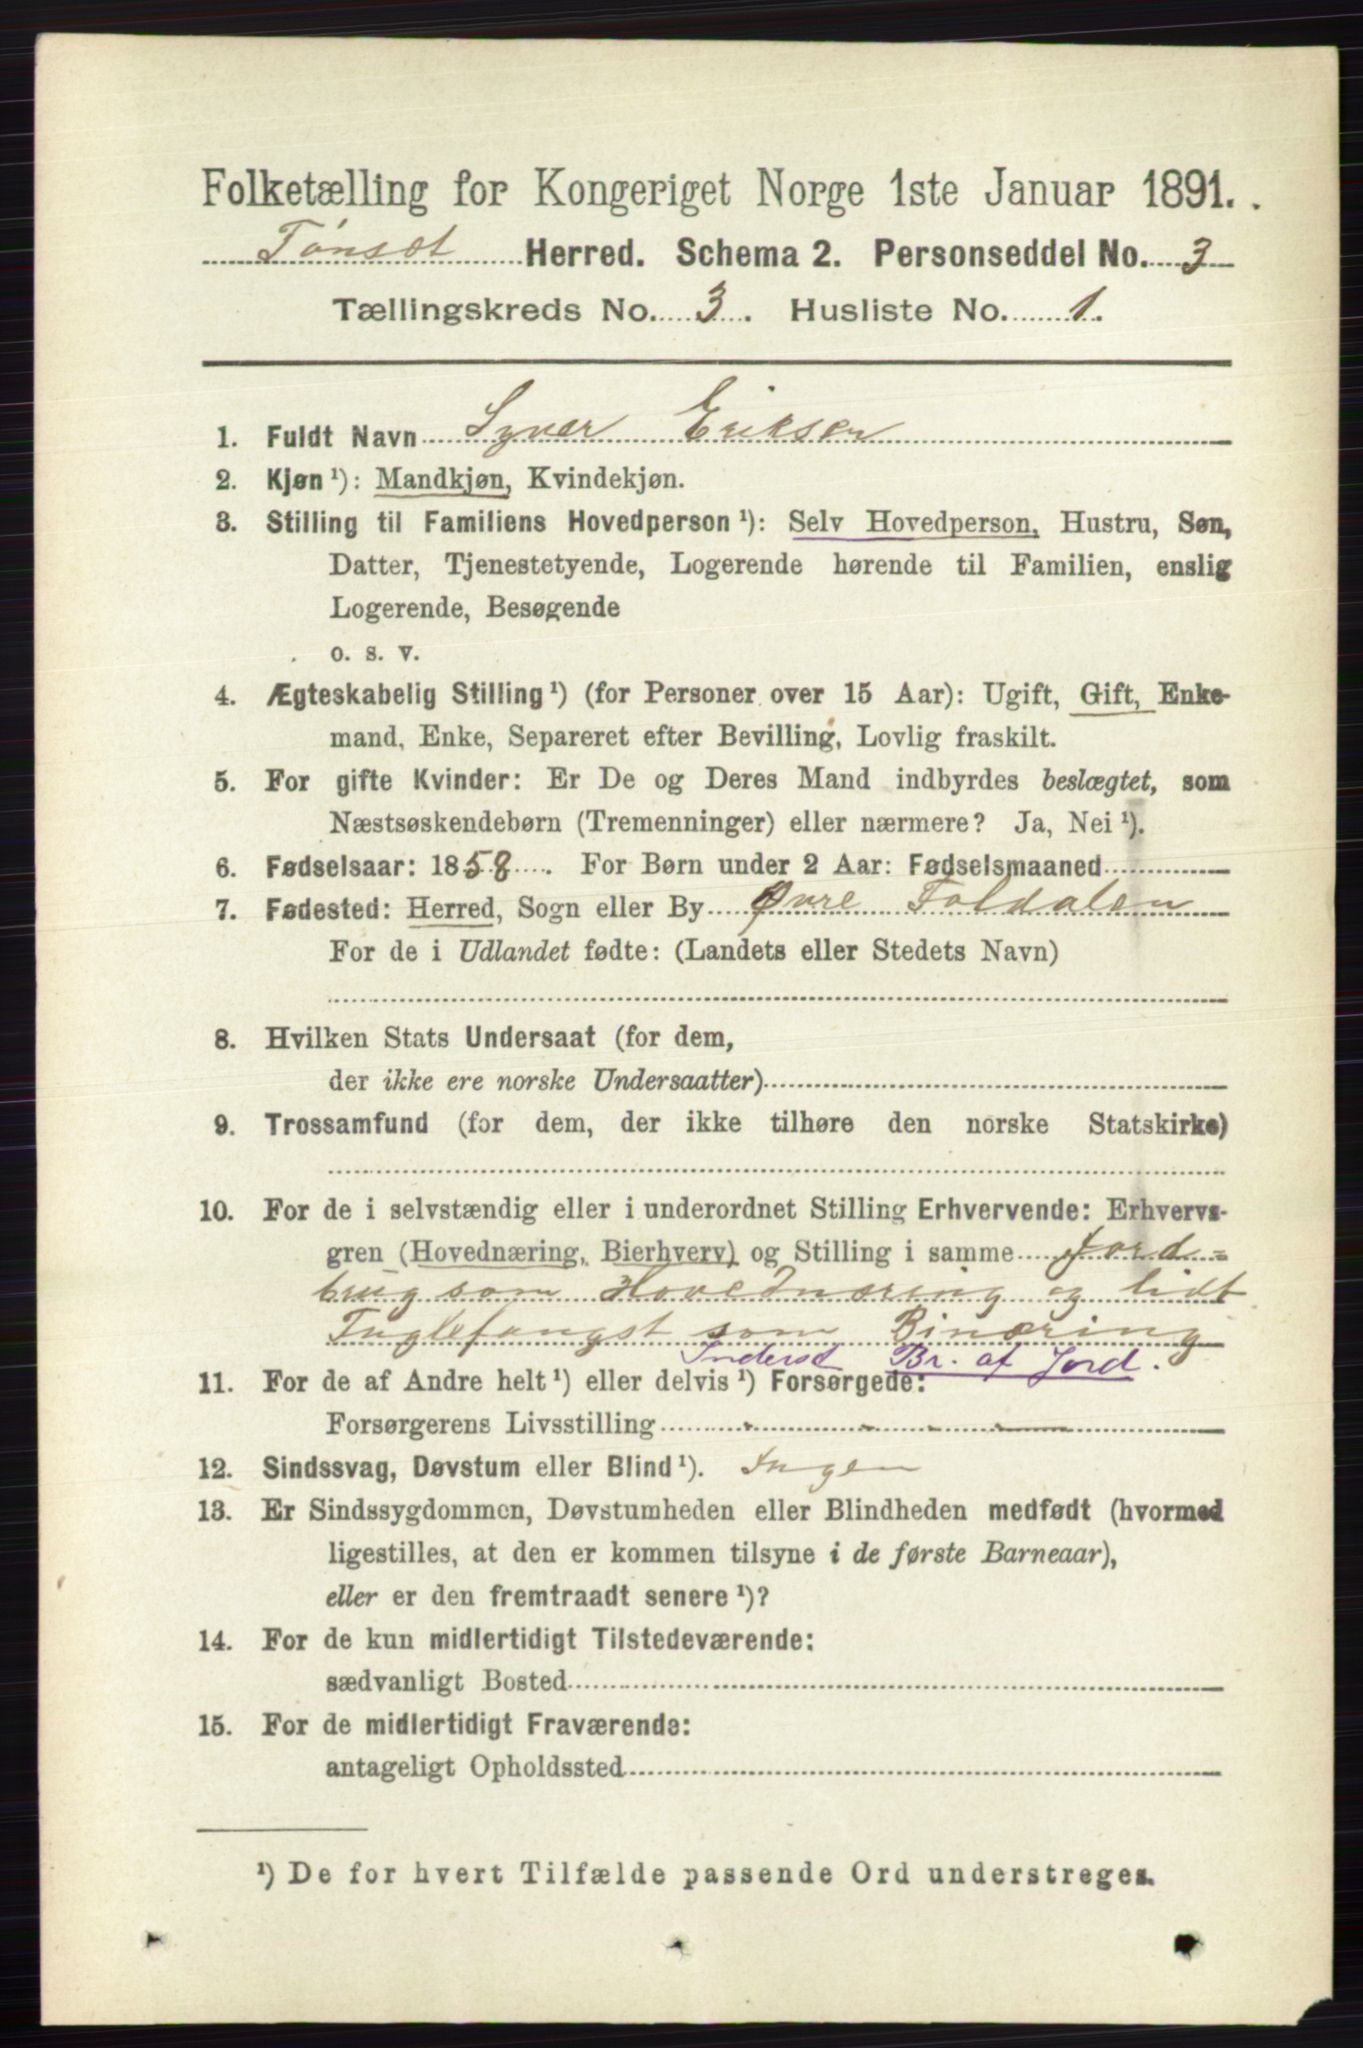 Folketælling for Kongeriget Norge 1ste Januar 1891.
Tønset Herred. Schema 2. Personseddel No. 3
Tællingskreds No. 3. Husliste No. 1.
1. Fuldt Navn Syver Eriksen
2. Kjøn ¹): Mandkjøn, Kvindekjøn.
3. Stilling til Familiens Hovedperson ¹): Selv Hovedperson, Hustru, Søn,
Datter, Tjenestetyende, Logerende hørende til Familien, enslig
Logerende, Besøgende
o. s. v.
4. Ægteskabelig Stilling ¹) (for Personer over 15 Aar): Ugift, Gift, Enke-
mand, Enke, Separeret efter Bevilling, Lovlig fraskilt.
5. For gifte Kvinder: Er De og Deres Mand indbyrdes beslægtet, som
Næstsøskendebørn (Tremenninger) eller nærmere? Ja, Nei ¹).
6. Fødselsaar: 1858. For Børn under 2 Aar: Fødselsmaaned
7. Fødested: Herred, Sogn eller By Øvre Foldalen
For de i Udlandet fødte: (Landets eller Stedets Navn)
8. Hvilken Stats Undersaat (for dem,
der ikke ere norske Undersaatter)
9. Trossamfund (for dem, der ikke tilhøre den norske Statskirke)
10. For de i selvstændig eller i underordnet Stilling Erhvervende: Erhvervs-
gren (Hovednæring, Bierhverv) og Stilling i samme Jord=
brug som Hovednæring og lidt
Fuglefangst som Binæring
Inderst Br. af Jord.
11. For de af Andre helt ¹) eller delvis ¹) Forsørgede:
Forsørgerens Livsstilling
12. Sindssvag, Døvstum eller Blind ¹). Ingen
13. Er Sindssygdommen, Døvstumheden eller Blindheden medfødt (hvormed
ligestilles, at den er kommen tilsyne i de første Barneaar),
eller er den fremtraadt senere ¹)?
14. For de kun midlertidigt Tilstedeværende:
sædvanligt Bosted
15. For de midlertidigt Fraværende:
antageligt Opholdssted
¹) De for hvert Tilfælde passende Ord understreges.